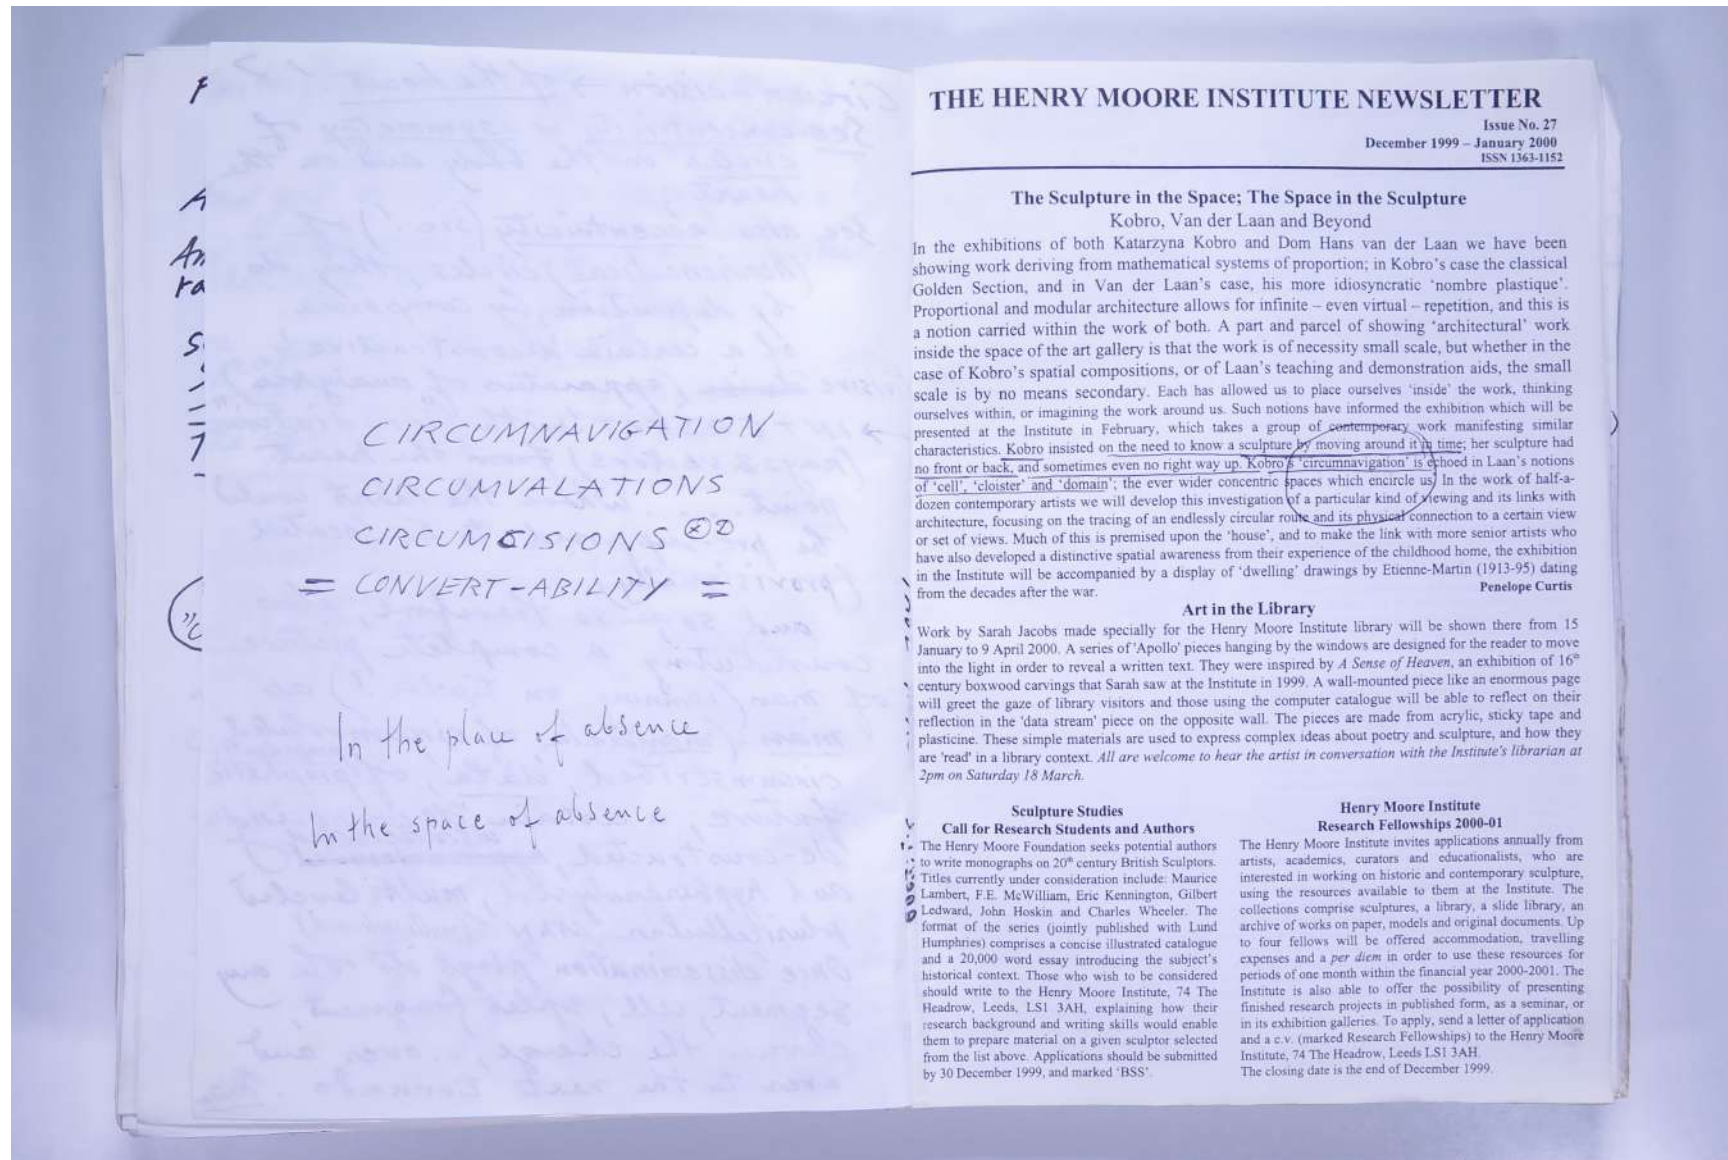 CIRCUMNAVIGATION
CIRCUMVALATIONS
CIRCUMCISIONS
= CONVERT-ABILITY =
In the place of absence
In the space of absence
THE HENRY MOORE INSTITUTE NEWSLETTER
Issue No. 27
December 1999 – January 2000
ISSN 1363-1152
The Sculpture in the Space; The Space in the Sculpture
Kobro, Van der Laan and Beyond
In the exhibitions of both Katarzyna Kobro and Dom Hans van der Laan we have been
showing work deriving from mathematical systems of proportion; in Kobro's case the classical
Golden Section, and in Van der Laan's case, his more idiosyncratic 'nombre plastique'.
Proportional and modular architecture allows for infinite – even virtual – repetition, and this is
a notion carried within the work of both. A part and parcel of showing 'architectural' work
inside the space of the art gallery is that the work is of necessity small scale, but whether in the
case of Kobro's spatial compositions, or of Laan's teaching and demonstration aids, the small
scale is by no means secondary. Each has allowed us to place ourselves 'inside' the work, thinking
ourselves within, or imagining the work around us. Such notions have informed the exhibition which will be
presented at the Institute in February, which takes a group of contemporary work manifesting similar
characteristics. Kobro insisted on the need to know a sculpture by moving around it in time; her sculpture had
no front or back, and sometimes even no right way up. Kobro's 'circumnavigation' is echoed in Laan's notions
of 'cell', 'cloister' and 'domain'; the ever wider concentric spaces which encircle us. In the work of half-a-
dozen contemporary artists we will develop this investigation of a particular kind of viewing and its links with
architecture, focusing on the tracing of an endlessly circular route and its physical connection to a certain view
or set of views. Much of this is premised upon the 'house', and to make the link with more senior artists who
have also developed a distinctive spatial awareness from their experience of the childhood home, the exhibition
in the Institute will be accompanied by a display of 'dwelling' drawings by Etienne-Martin (1913-95) dating
from the decades after the war.
Penelope Curtis
Art in the Library
Work by Sarah Jacobs made specially for the Henry Moore Institute library will be shown there from 15
January to 9 April 2000. A series of 'Apollo' pieces hanging by the windows are designed for the reader to move
into the light in order to reveal a written text. They were inspired by A Sense of Heaven, an exhibition of 16th
century boxwood carvings that Sarah saw at the Institute in 1999. A wall-mounted piece like an enormous page
will greet the gaze of library visitors and those using the computer catalogue will be able to reflect on their
reflection in the 'data stream' piece on the opposite wall. The pieces are made from acrylic, sticky tape and
plasticine. These simple materials are used to express complex ideas about poetry and sculpture, and how they
are 'read' in a library context. All are welcome to hear the artist in conversation with the Institute's librarian at
2pm on Saturday 18 March.
Sculpture Studies
Call for Research Students and Authors
The Henry Moore Foundation seeks potential authors
to write monographs on 20th century British Sculptors.
Titles currently under consideration include: Maurice
Lambert, F.E. McWilliam, Eric Kennington, Gilbert
Ledward, John Hoskin and Charles Wheeler. The
format of the series (jointly published with Lund
Humphries) comprises a concise illustrated catalogue
and a 20,000 word essay introducing the subject's
historical context. Those who wish to be considered
should write to the Henry Moore Institute, 74 The
Headrow, Leeds, LS1 3AH, explaining how their
research background and writing skills would enable
them to prepare material on a given sculptor selected
from the list above. Applications should be submitted
by 30 December 1999, and marked 'BSS'.
Henry Moore Institute
Research Fellowships 2000-01
The Henry Moore Institute invites applications annually from
artists, academics, curators and educationalists, who are
interested in working on historic and contemporary sculpture,
using the resources available to them at the Institute. The
collections comprise sculptures, a library, a slide library, an
archive of works on paper, models and original documents. Up
to four fellows will be offered accommodation, travelling
expenses and a per diem in order to use these resources for
periods of one month within the financial year 2000-2001. The
Institute is also able to offer the possibility of presenting
finished research projects in published form, as a seminar, or
in its exhibition galleries. To apply, send a letter of application
and a c.v. (marked Research Fellowships) to the Henry Moore
Institute, 74 The Headrow, Leeds LS1 3AH.
The closing date is the end of December 1999.